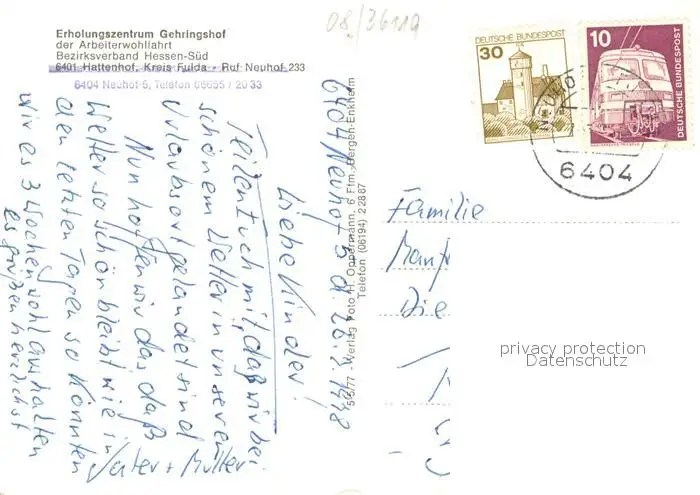 08/36119
Erholungszentrum Gehringshof
der Arbeiterwohlfahrt
Bezirksverband Hessen-Süd
6401 Hattenhof, Kreis Fulda - Ruf Neuhof 233
6404 Neuhof-5, Telefon 06655 / 20 33
30
DEUTSCHE BUNDESPOST
10
DEUTSCHE BUNDESPOST
6404
5/5/77 - Verlag Foto - H. Oppermann, 6 Ffm.-Bergen-Enkheim
Telefon (06194) 2 28 87
6404 Neuhof 5 d. 26.2.1978
Liebe Kinder!
Teilen Euch mit, daß wir bei
schönem Wetter in unseren
Urlaubsort gelandet sind
Nun hoffen wir das, daß
Wetter so schön bleibt wie in
den letzten Tagen so könnten
wir es 3 Wochen wohl aushalten
es grüßen herzlichst
Vater + Mutter
Familie
Manf
Die
privacy protection
Datenschutz